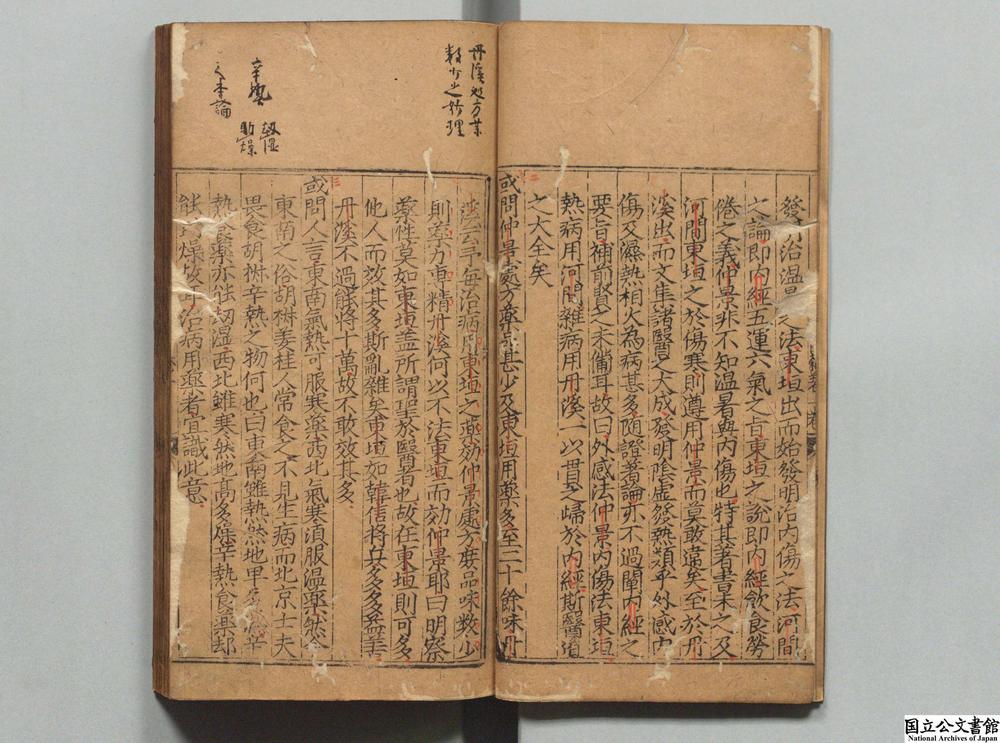 發明治温暑之法東垣出而始發明治内傷之法河間
之論即内經五運六氣之旨東垣之說即内經飲食勞
倦之義仲景非不知温暑與内傷也特其著書未之及
河間東垣之於傷寒則遵用仲景而莫敢違矣至於丹
溪出而又集諸賢之大成發明陰虚發熱類乎外感内
傷及濕熱相火為病甚多隨證著論亦不過闡内經之
要旨補前賢之未備耳故曰外感法仲景内傷法東垣
熱病用河間雜病用丹溪一以貫之歸於内經斯醫道
之大全矣
或問仲景處方藥品甚少及東垣用藥多至二十餘味丹
溪云予每治病用東垣之藥効仲景處方庶品味數少
則藥力專精丹溪何以不法東垣而効仲景耶曰明察
藥性莫如東垣盖所謂聖於醫者也故在東垣則可多
他人而效其多斯亂雜矣東垣如韓信將兵多多益善
丹溪不過能將十萬故不敢效其多
或問人言東南氣熱可服寒藥西北氣寒須服温藥然今
東南之俗胡椒姜桂人常食之不見生病而北京士夫
畏食胡椒辛熱之物何也曰東南雖熱然地卑多濕辛
熱食藥亦能劫濕西北雖寒然地高多燥辛熱食藥却
能助燥故耳治病用藥者宜識此意
丹溪处方葉
数少之妙理
辛熱
之本論
劫湿
助燥
国立公文書館
National Archives of Japan